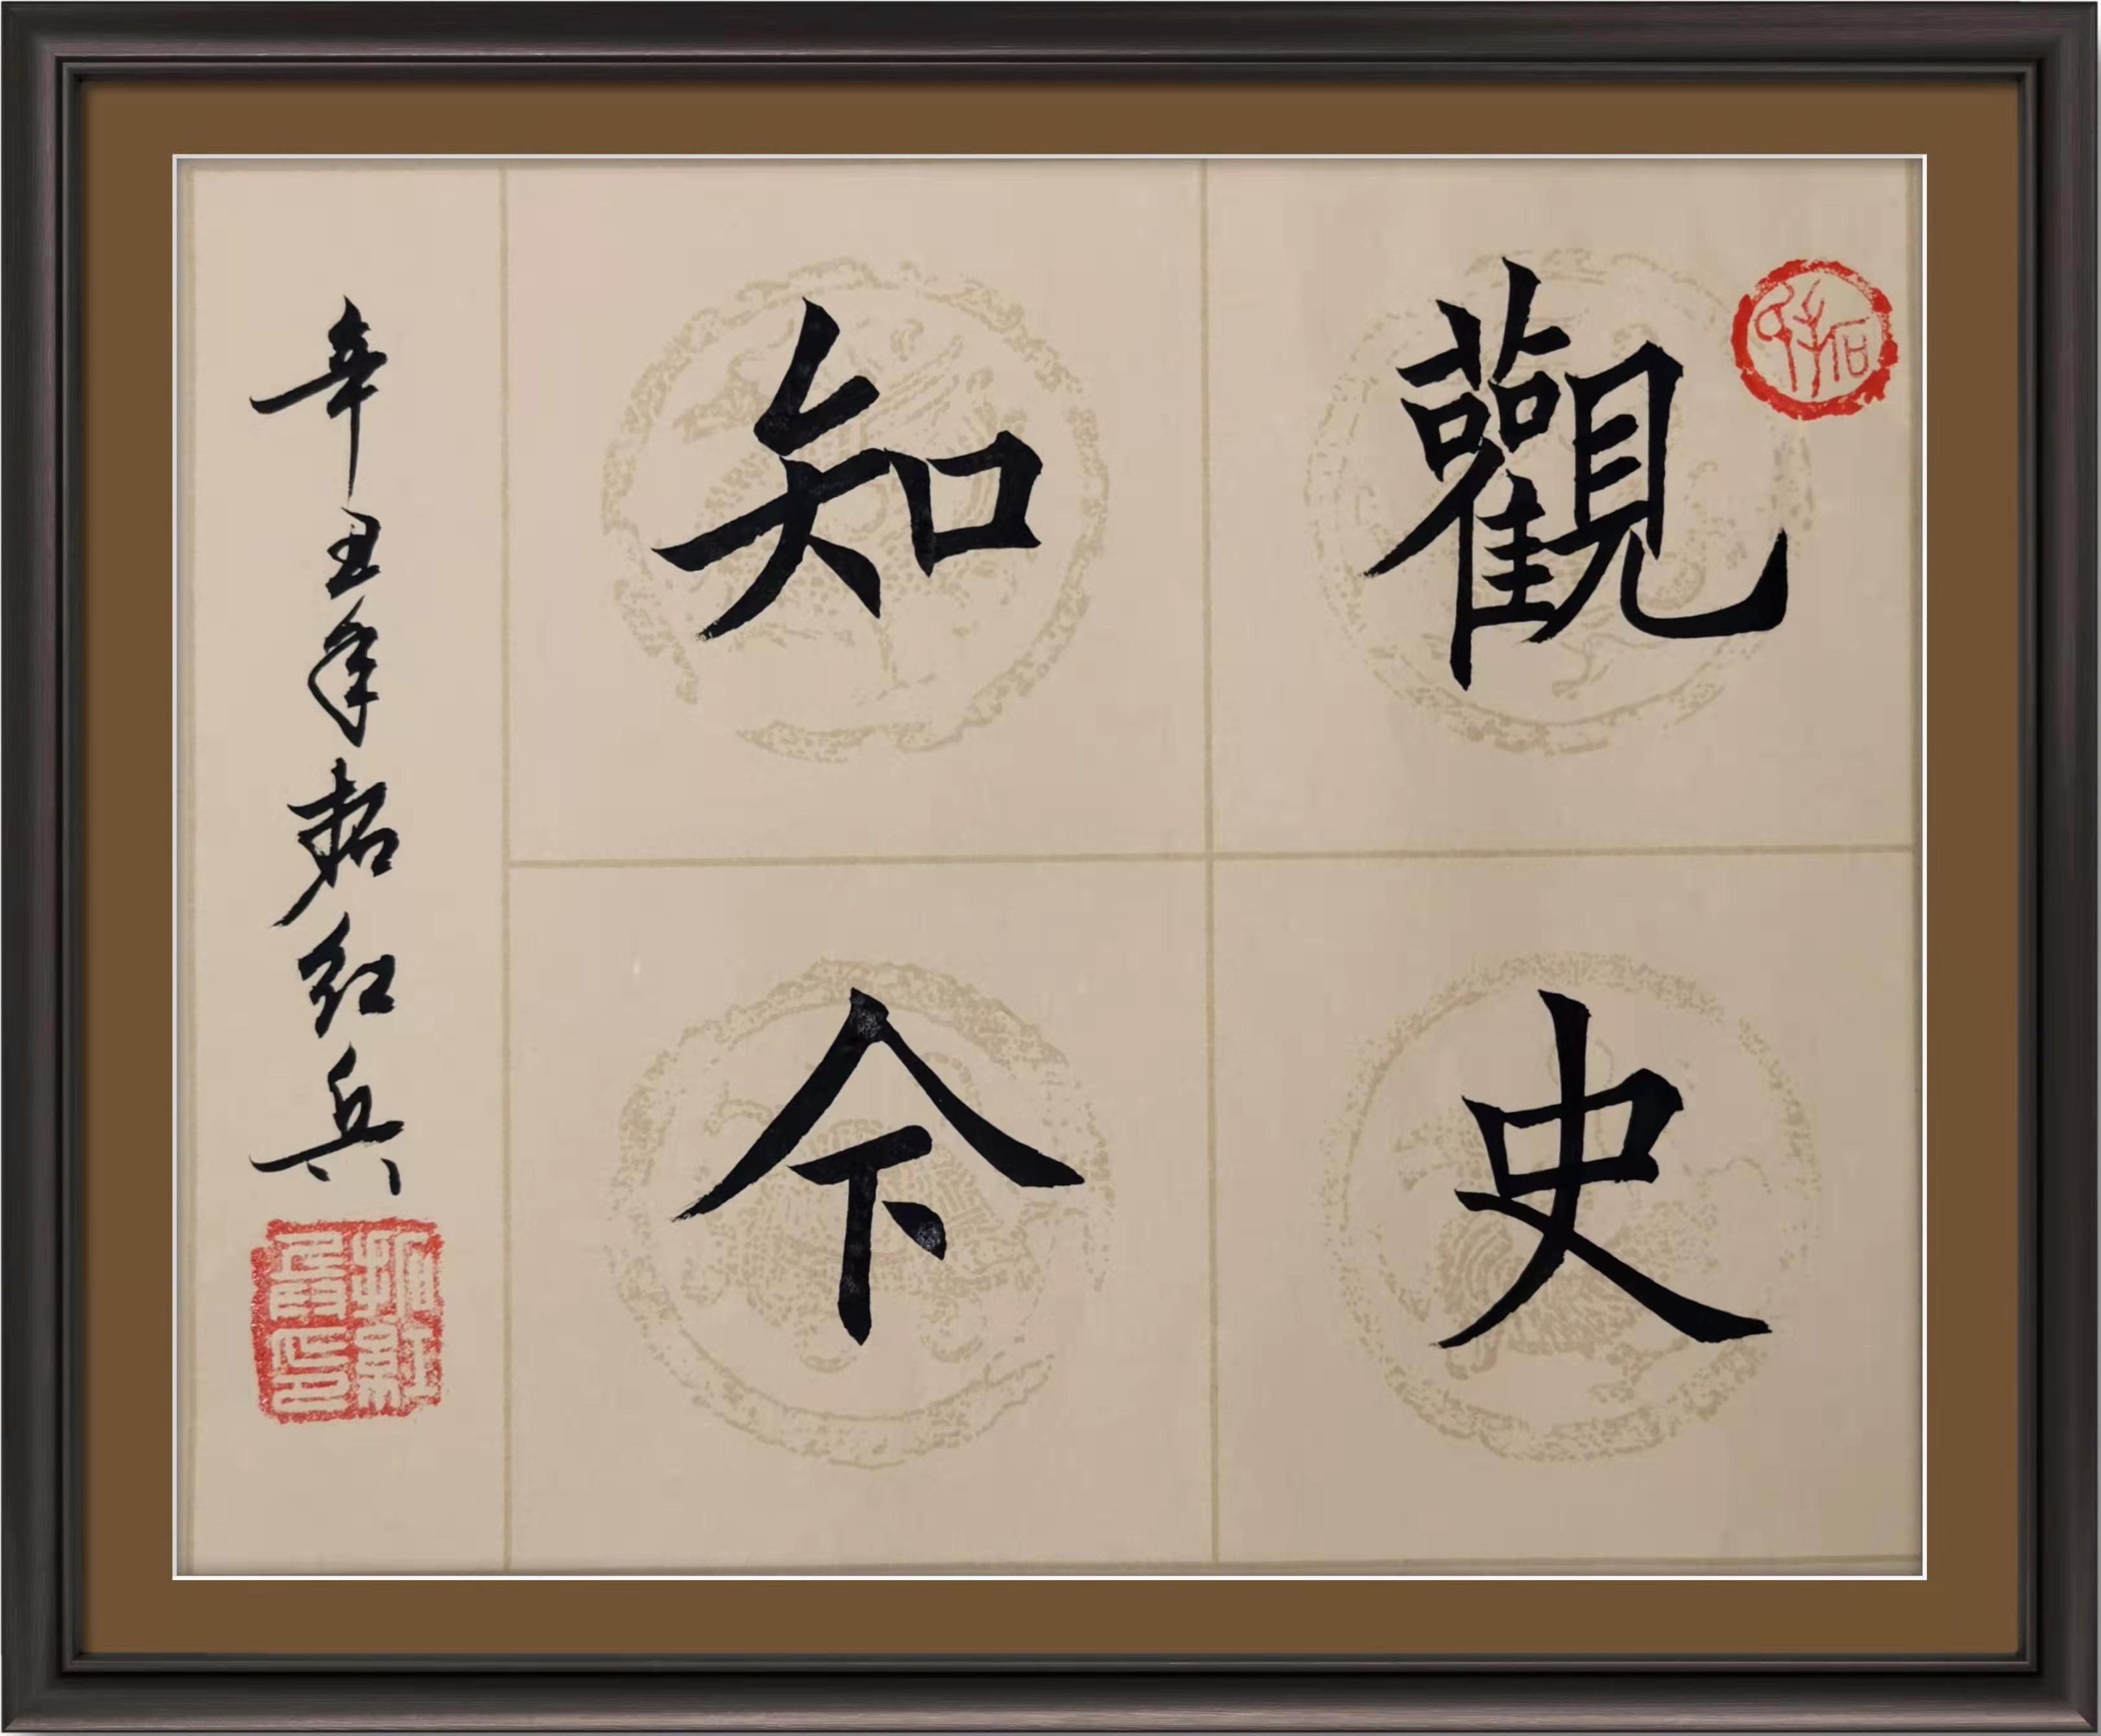 拓
觀史
知今
辛丑年拓红兵
拓紅
兵印